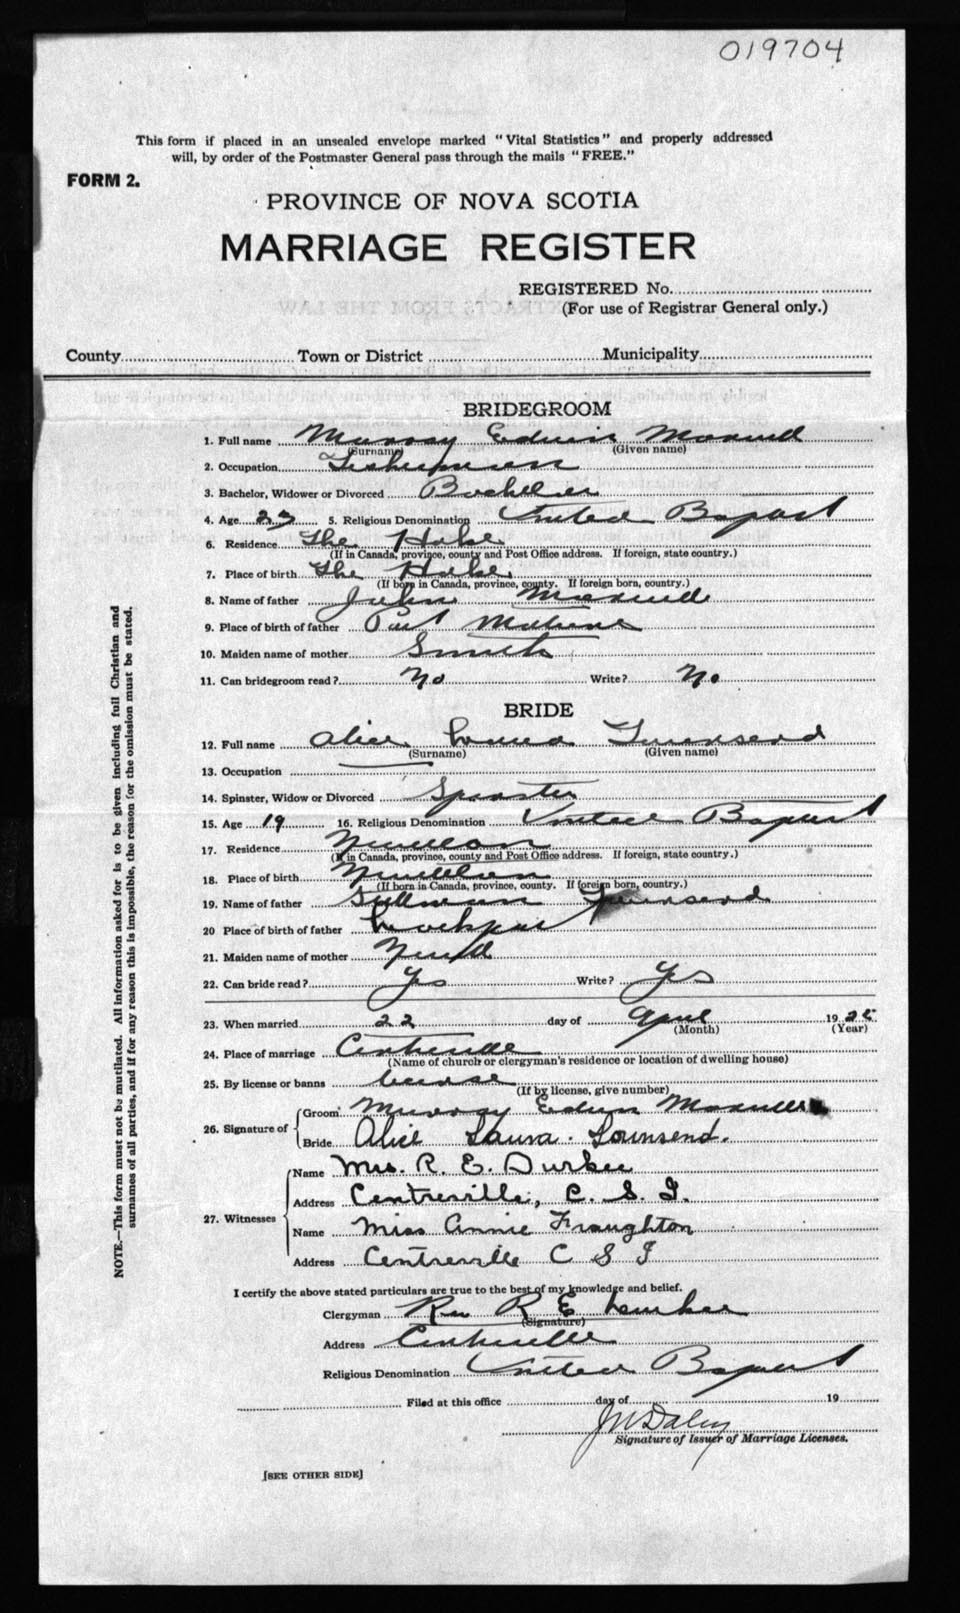 019704
This form if placed in an unsealed envelope marked "Vital Statistics" and properly addressed
will, by order of the Postmaster General pass through the mails "FREE."
FORM 2.
PROVINCE OF NOVA SCOTIA
MARRIAGE REGISTER
REGISTERED No.
(For use of Registrar General only.)
County Town or District Municipality
BRIDEGROOM
1. Full name Murray Edwin Maxwell
(Surname) (Given name)
2. Occupation Fisherman
3. Bachelor, Widower or Divorced Bachelor
4. Age 23 5. Religious Denomination United Baptist
6. Residence The Hake
(If in Canada, province, county and Post Office address. If foreign, state country.)
7. Place of birth The Hake
(If born in Canada, province, county. If foreign born, country.)
8. Name of father John Maxwell
9. Place of birth of father Port
10. Maiden name of mother Smith
11. Can bridegroom read? No Write? No
BRIDE
12. Full name Alice Laura Townsend
(Surname) (Given name)
13. Occupation
14. Spinster, Widow or Divorced Spinster
15. Age 19 16. Religious Denomination United Baptist
17. Residence
(If in Canada, province, county and Post Office address. If foreign, state country.)
18. Place of birth
(If born in Canada, province, county. If foreign born, country.)
19. Name of father Tillman Townsend
20 Place of birth of father Lockport
21. Maiden name of mother
22. Can bride read? Yes Write? Yes
23. When married 22 day of April 1925
(Month) (Year)
24. Place of marriage Centreville
(Name of church or clergyman's residence or location of dwelling house)
25. By license or banns license
(If by license, give number)
26. Signature of Groom Murray Edwin Maxwell
Bride Alice Laura Townsend.
27. Witnesses Name Mrs. R. E. Durkee
Address Centreville, C. S. I.
Name Miss Annie Fraughton
Address Centreville C S I
I certify the above stated particulars are true to the best of my knowledge and belief.
Clergyman Rev R E Durkee
(Signature)
Address Centreville
Religious Denomination United Baptist
Filed at this office day of 19
J W Daley
Signature of Issuer of Marriage Licenses.
[SEE OTHER SIDE]
NOTE.—This form must not be mutilated. All information asked for is to be given including full Christian and
surnames of all parties, and if for any reason this is impossible, the reason for the omission must be stated.